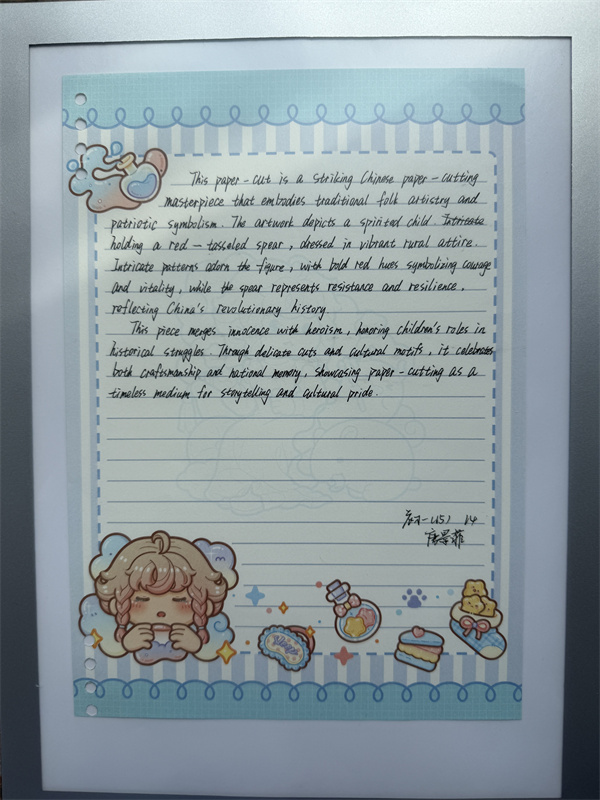 This paper-cut is a striking Chinese paper-cutting
masterpiece that embodies traditional folk artistry and
patriotic symbolism. The artwork depicts a spirited child Intricate
holding a red-tasseled spear, dressed in vibrant rural attire.
Intricate patterns adorn the figure, with bold red hues symbolizing courage
and vitality, while the spear represents resistance and resilience,
reflecting China's revolutionary history.
This piece merges innocence with heroism, honoring children's roles in
historical struggles. Through delicate cuts and cultural motifs, it celebrates
both craftsmanship and national memory, showcasing paper-cutting as a
timeless medium for storytelling and cultural pride.